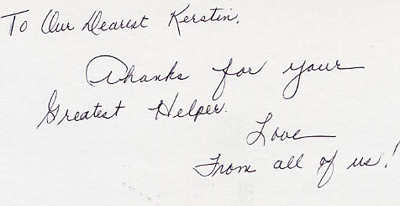 To Our Dearest Kerstin,
Thanks for your
Greatest Helper.
Love
From all of us!